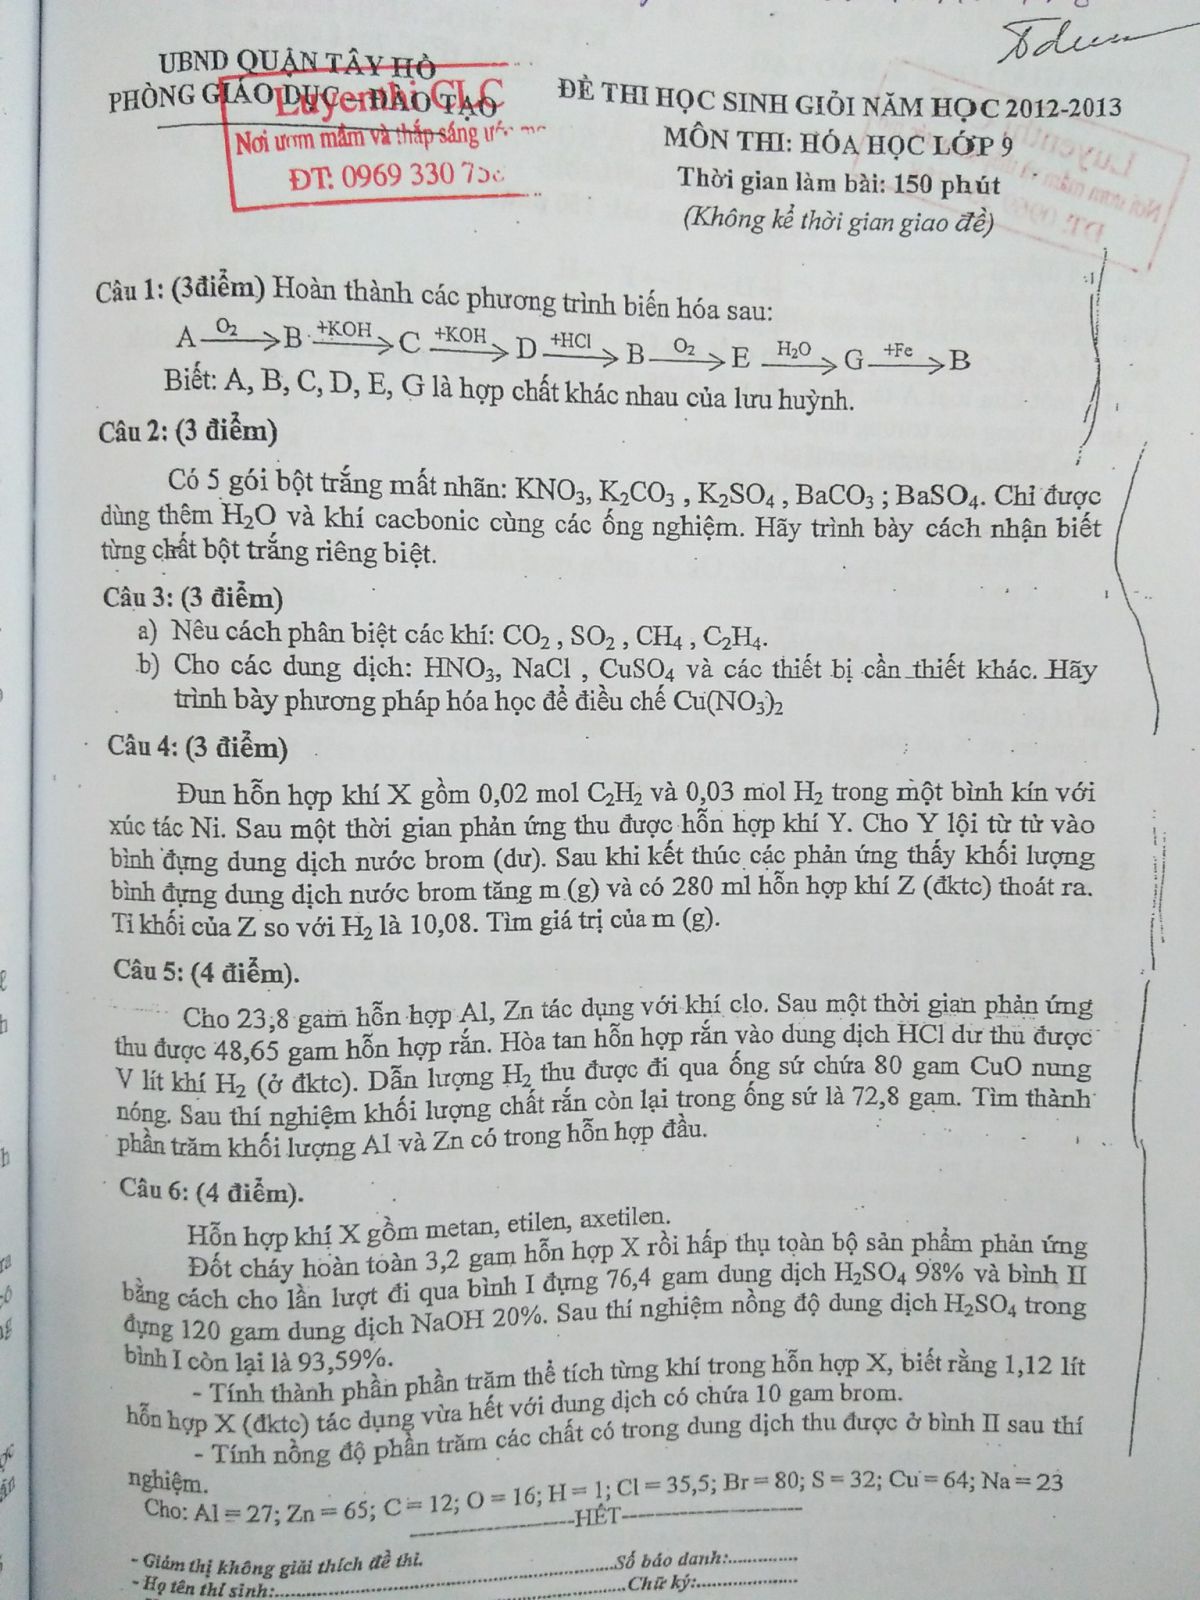 UBND QUẬN TÂY HỒ
PHÒNG GIÁO DỤC – ĐÀO TẠO
Luyenthi CLC
Nơi ươm mầm và thắp sáng
ĐT: 0969 330
ĐỀ THI HỌC SINH GIỎI NĂM HỌC 2012-2013
MÔN THI: HÓA HỌC LỚP 9
Thời gian làm bài: 150 phút
(Không kể thời gian giao đề)
Câu 1: (3điểm) Hoàn thành các phương trình biến hóa sau:
A —O₂→ B —+KOH→ C —+KOH→ D —+HCl→ B —O₂→ E —H₂O→ G —+Fe→ B
Biết: A, B, C, D, E, G là hợp chất khác nhau của lưu huỳnh.
Câu 2: (3 điểm)
Có 5 gói bột trắng mất nhãn: KNO₃, K₂CO₃ , K₂SO₄ , BaCO₃ ; BaSO₄. Chỉ được
dùng thêm H₂O và khí cacbonic cùng các ống nghiệm. Hãy trình bày cách nhận biết
từng chất bột trắng riêng biệt.
Câu 3: (3 điểm)
a) Nêu cách phân biệt các khí: CO₂ , SO₂ , CH₄ , C₂H₄.
b) Cho các dung dịch: HNO₃, NaCl , CuSO₄ và các thiết bị cần thiết khác. Hãy
trình bày phương pháp hóa học để điều chế Cu(NO₃)₂
Câu 4: (3 điểm)
Đun hỗn hợp khí X gồm 0,02 mol C₂H₂ và 0,03 mol H₂ trong một bình kín với
xúc tác Ni. Sau một thời gian phản ứng thu được hỗn hợp khí Y. Cho Y lội từ từ vào
bình đựng dung dịch nước brom (dư). Sau khi kết thúc các phản ứng thấy khối lượng
bình đựng dung dịch nước brom tăng m (g) và có 280 ml hỗn hợp khí Z (đktc) thoát ra.
Tỉ khối của Z so với H₂ là 10,08. Tìm giá trị của m (g).
Câu 5: (4 điểm).
Cho 23,8 gam hỗn hợp Al, Zn tác dụng với khí clo. Sau một thời gian phản ứng
thu được 48,65 gam hỗn hợp rắn. Hòa tan hỗn hợp rắn vào dung dịch HCl dư thu được
V lít khí H₂ (ở đktc). Dẫn lượng H₂ thu được đi qua ống sứ chứa 80 gam CuO nung
nóng. Sau thí nghiệm khối lượng chất rắn còn lại trong ống sứ là 72,8 gam. Tìm thành
phần trăm khối lượng Al và Zn có trong hỗn hợp đầu.
Câu 6: (4 điểm).
Hỗn hợp khí X gồm metan, etilen, axetilen.
Đốt cháy hoàn toàn 3,2 gam hỗn hợp X rồi hấp thụ toàn bộ sản phẩm phản ứng
bằng cách cho lần lượt đi qua bình I đựng 76,4 gam dung dịch H₂SO₄ 98% và bình II
đựng 120 gam dung dịch NaOH 20%. Sau thí nghiệm nồng độ dung dịch H₂SO₄ trong
bình I còn lại là 93,59%.
- Tính thành phần phần trăm thể tích từng khí trong hỗn hợp X, biết rằng 1,12 lít
hỗn hợp X (đktc) tác dụng vừa hết với dung dịch có chứa 10 gam brom.
- Tính nồng độ phần trăm các chất có trong dung dịch thu được ở bình II sau thí
nghiệm.
Cho: Al = 27; Zn = 65; C = 12; O = 16; H = 1; Cl = 35,5; Br = 80; S = 32; Cu = 64; Na = 23
-----HẾT-----
- Giám thị không giải thích đề thi.
- Họ tên thí sinh:..........Số báo danh:..........
..........Chữ ký:..........